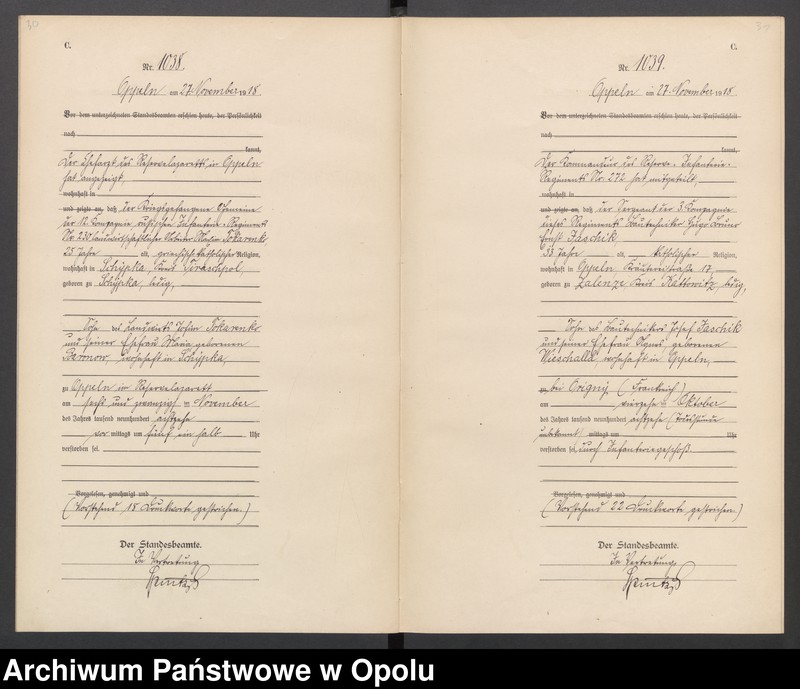 C.
Nr. 1038.
Oppeln am 27. November 1918
Vor dem unterzeichneten Standesbeamten erschien heute, der Persönlichkeit
nach
kannt,
Der Chefarzt des Reservelazaretts in Oppeln
hat angezeigt,
wohnhaft in
und zeigte an, daß der Kriegsgefangene Gemeine
der 12. Kompagnie russischen Infanterie-Regiments
Nr. 230 landwirtschaftlicher Arbeiter Tokarenko
25 Jahre alt, griechisch-katholischer Religion,
wohnhaft in Schijpka, Kreis Tiraschpol,
geboren zu Schijpka, ledig,
Sohn des Landwirts Johann Tokarenko
und seiner Ehefrau Maria geborenen
wohnhaft in Schijpka,
zu Oppeln im Reservelazarett
am sechs und zwanzigsten November
des Jahres tausend neunhundert achtzehn
vor mittags um fünf ein halb Uhr
verstorben sei.
Vorgelesen, genehmigt und
(Vorstehend 18 Druckworte gestrichen.)
Der Standesbeamte.
In Vertretung
C.
Nr. 1039.
Oppeln am 27. November 1918.
Vor dem unterzeichneten Standesbeamten erschien heute, der Persönlichkeit
nach
kannt,
Der Kommandeur des Reserve-Infanterie-
Regiments Nr. 272 hat mitgeteilt,
wohnhaft in
und zeigte an, daß der Sergeant der 3. Kompagnie
dieses Regiments Bautechniker Hugo Bruno
Ernst Jaschik,
33 Jahre alt, katholischer Religion,
wohnhaft in Oppeln, Kräutereistraße 17,
geboren zu Zalenze, Kreis Kattowitz, ledig,
Sohn des Bautechnikers Josef Jaschik
und seiner Ehefrau Agnes geborenen
Wieschalla, wohnhaft in Oppeln,
zu bei Origny, (Frankreich)
am vierzehnten Oktober
des Jahres tausend neunhundert achtzehn (Todesstunde
unbekannt) mittags um Uhr
verstorben sei, durch Infanteriegeschoß.
Vorgelesen, genehmigt und
(Vorstehend 22 Druckworte gestrichen.)
Der Standesbeamte.
In Vertretung
Archiwum Państwowe w Opolu